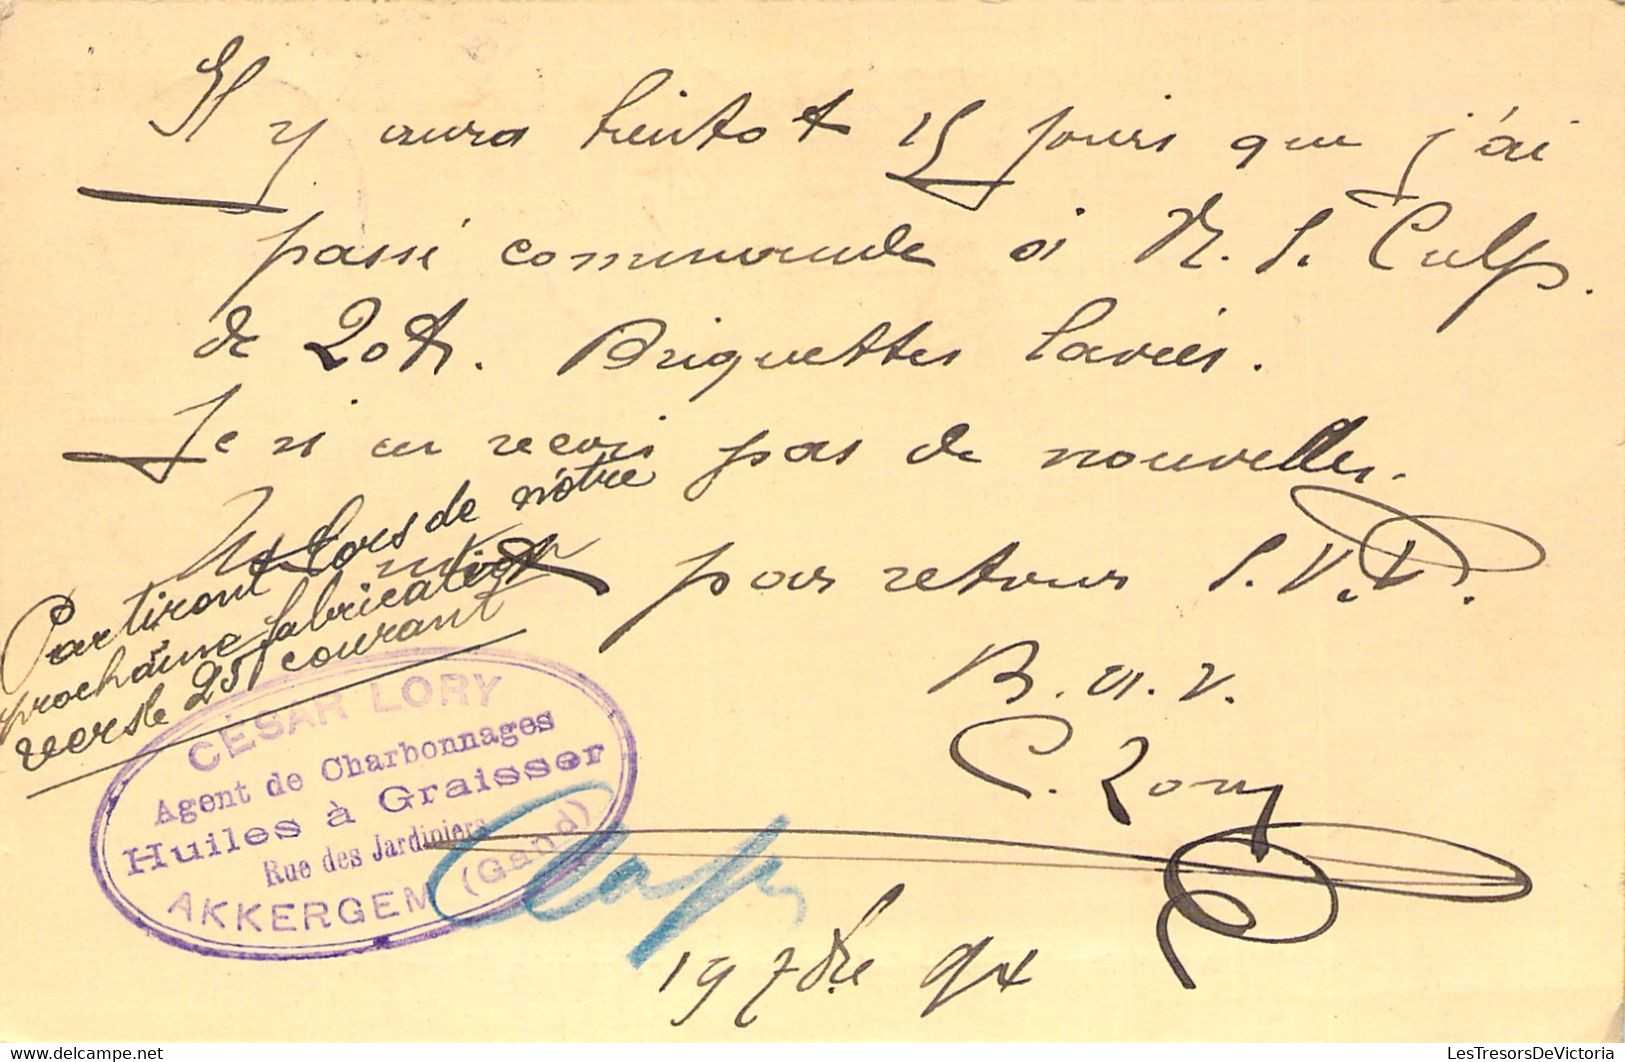 Il y aura bientot 15 jours que j'ai
passé commande à M. S. Culp.
de 20 tn. Briquettes lavées.
Je n'en reçois pas de nouvelles.
par retour S.V.P.
B. à. v.
C. Lory
19 7bre 94
Partiront lors de notre
prochaine fabrication
vers le 25 courant
CÉSAR LORY
Agent de Charbonnages
Huiles à Graisser
Rue des Jardiniers
AKKERGEM (Gand)
LesTresorsDeVictoria